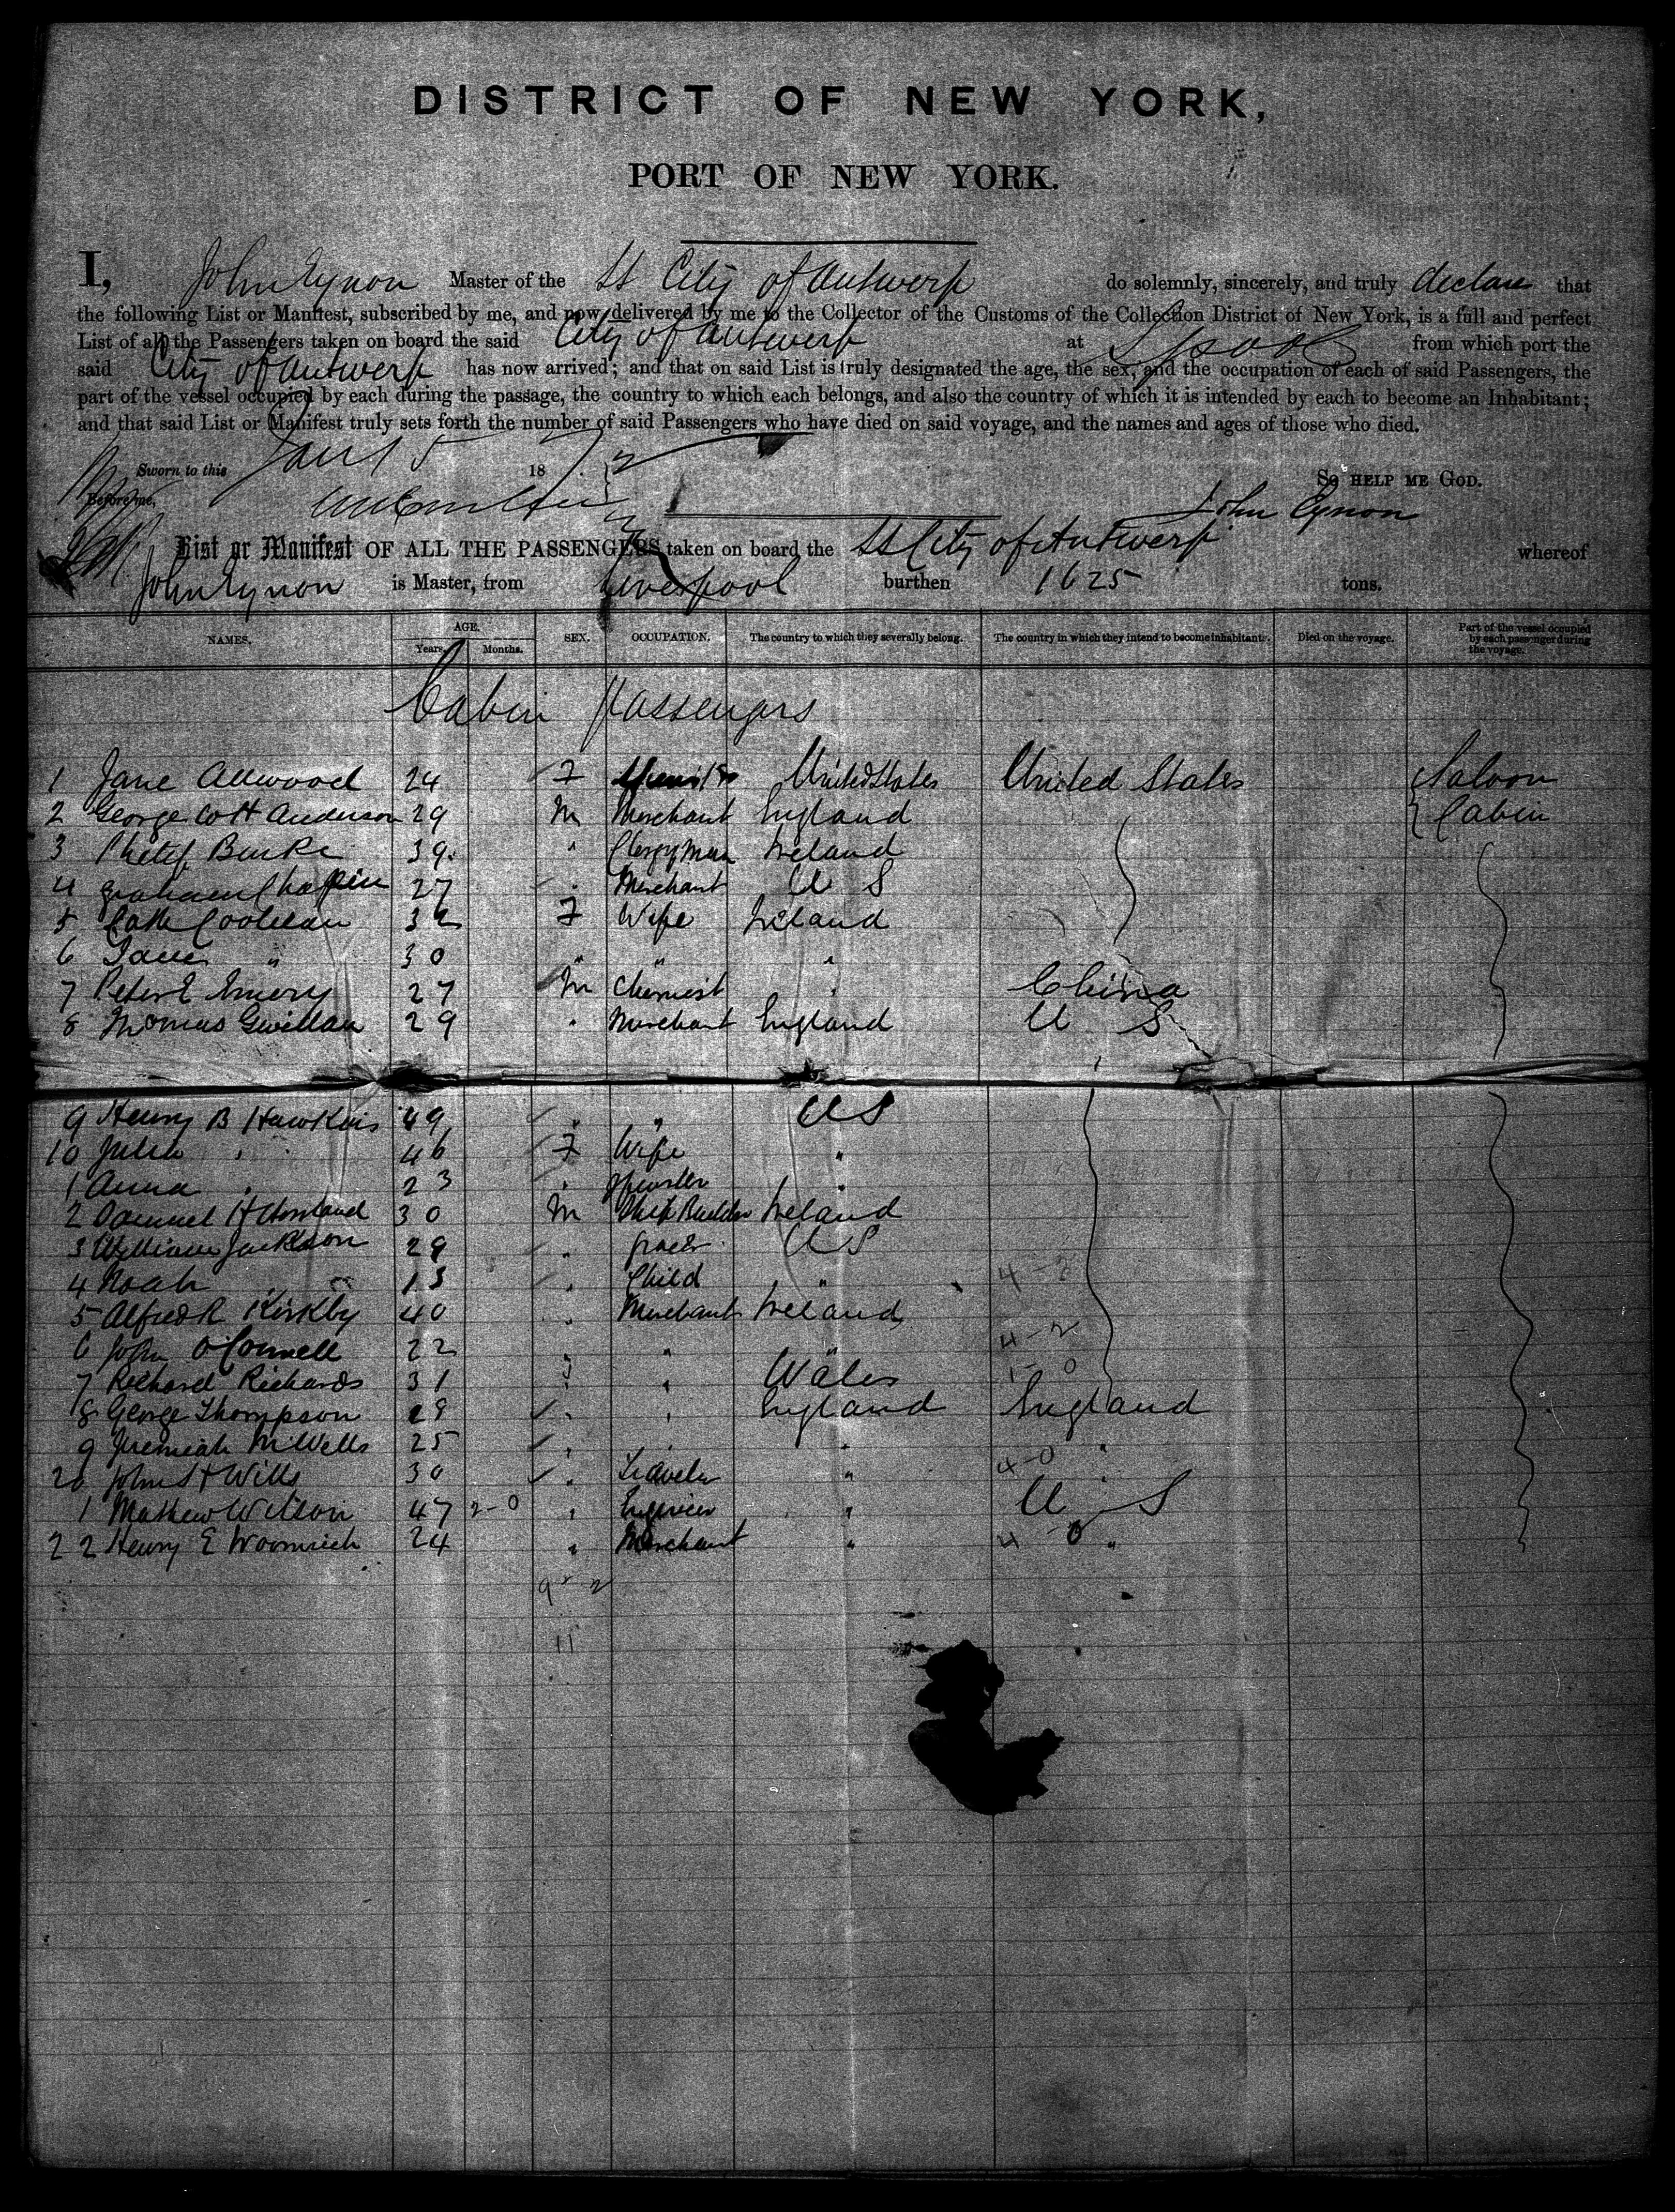 DISTRICT OF NEW YORK,
PORT OF NEW YORK.
I, John Eynon Master of the SS City of Antwerp do solemnly, sincerely, and truly declare that
the following List or Manifest, subscribed by me, and now delivered by me to the Collector of the Customs of the Collection District of New York, is a full and perfect
List of all the Passengers taken on board the said City of Antwerp at Lpool from which port the
said City of Antwerp has now arrived; and that on said List is truly designated the age, the sex, and the occupation of each of said Passengers, the
part of the vessel occupied by each during the passage, the country to which each belongs, and also the country of which it is intended by each to become an Inhabitant;
and that said List or Manifest truly sets forth the number of said Passengers who have died on said voyage, and the names and ages of those who died.
Sworn to this Jany 5 1872 So HELP ME GOD.
Before me, John Eynon
List or Manifest OF ALL THE PASSENGERS taken on board the SS City of Antwerp whereof
John Eynon is Master, from Liverpool burthen 1625 tons.
NAMES. AGE. SEX. OCCUPATION. The country to which they severally belong. The country in which they intend to become inhabitants. Died on the voyage. Part of the vessel occupied by each passenger during the voyage.
Years. Months.
Cabin Passengers
1 Jane Allwood 24 F United States United States Saloon
2 George Anderson 29 M Merchant England Cabin
3 Burke 39 " Clergyman Ireland
4 Graham Chapin 27 " Merchant U S
5 Cath 32 F Wife Ireland
6 Jane " 30 " " "
7 Peter E Emery 27 M Chemist " China
8 Thomas Gwillan 29 " Merchant England U S
9 Henry B Hawkins 49 " " U S
10 Julia " 46 F Wife "
1 Anna " 23 " Spinster "
2 Samuel 30 M Ship Builder Ireland
3 William Jackson 29 " Grocer U S
4 Noah " 13 " Child " 4-2
5 Alfred R Kirkby 40 " Merchant Ireland
6 John O'Connell 22 " " " 4-2
7 Richard Richards 31 " " Wales
8 George Thompson 29 " " England England
9 Jeremiah M Wells 25 " " " "
20 John St Wills 30 " Traveler " 4-0
1 Mathew Wilson 47 2-0 " Engineer " U S
22 Henry E Woomrich 24 " Merchant " 4-0 "
9-2
11